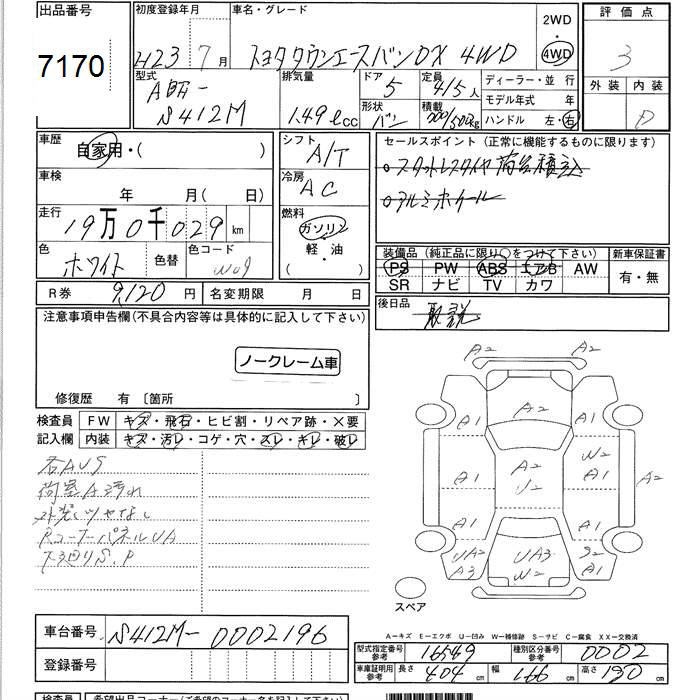 出品番号
7170
初度登録年月
H23 7月
車名・グレード
トヨタタウンエースバンDX 4WD
2WD
・
4WD
評価点
3
外装 内装
D
型式
S412M
排気量
1.49ℓcc
ドア
5
定員
4/5人
形状
バン
積載
ディーラー・並行
モデル年式 年
ハンドル 左・右
車歴
自家用・( )
車検
年 月( 日)
走行
19万0千029km
色
ホワイト
色替
色コード
W09
シフト
A/T
冷房
AC
燃料
ガソリン
軽・油
( )
セールスポイント(正常に機能するものに限ります)
○スタットレスタイヤ荷台積込
○アルミホイール
装備品(純正品に限り○をつけて下さい)
PS PW ABS エアB AW
SR ナビ TV カワ
新車保証書
有・無
R券 9,120円
名変期限 月 日
後日品
取説
注意事項申告欄(不具合内容等は具体的に記入して下さい)
ノークレーム車
修復歴 有〔箇所 〕
検査員
記入欄
FW キズ・飛石・ヒビ割・リペア跡・×要
内装 キズ・汚レ・コゲ・穴・スレ・キレ・破レ
各AUS
荷室A汚れ
外装ツヤなし
RコーナーパネルUA
下廻りS.P
A2 A2
A1 A2 A1
A1 A2 W2 A2
U2 A1
A1 A1
UA2 UA3 S2
A3 W2 A1
スペア
A-キズ E-エクボ U-凹み W-補修跡 S-サビ C-腐食 XX-交換済
車台番号 S412M-0002196
登録番号
型式指定番号
参考
16549
種別区分番号
参考
0002
車庫証明用
参考
長さ 404cm 幅 166cm 高さ 190cm
検査員 希望出品コーナー(ご希望のコーナー名を記入して下さい)